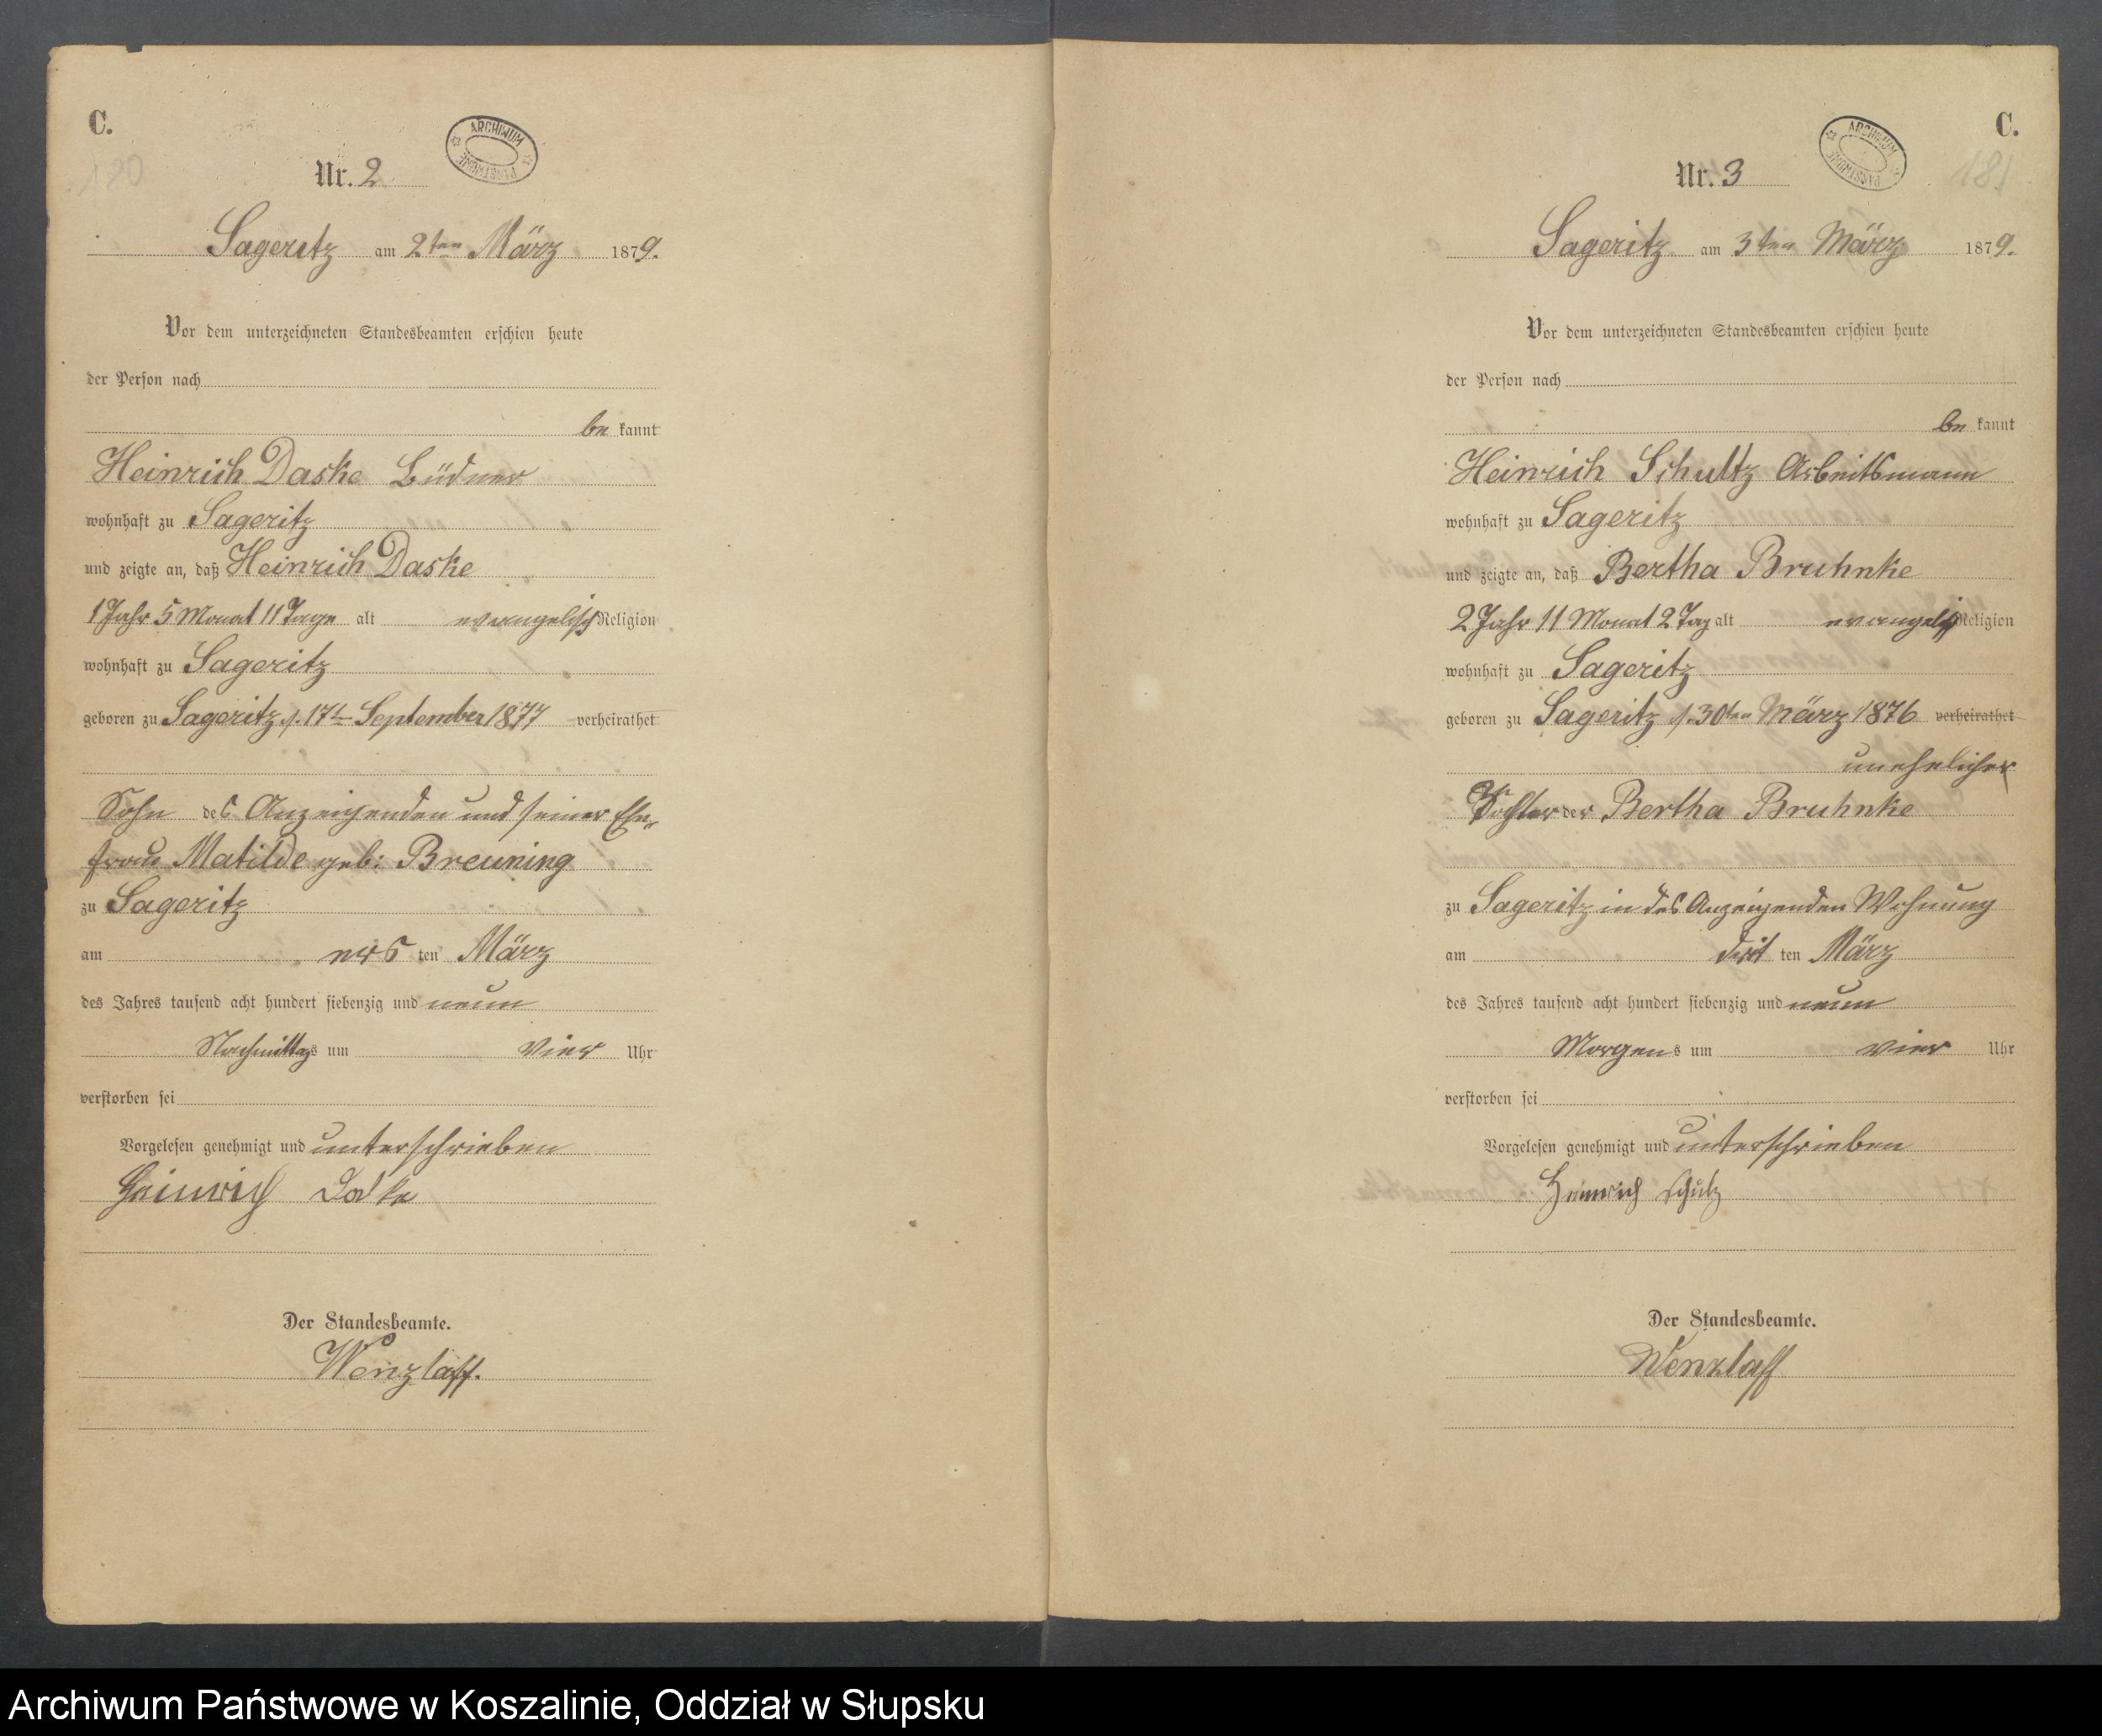 C.
180
Nr. 2
ARCHIWUM PAŃSTWOWE
Sageritz am 2ten März 1879.
Vor dem unterzeichneten Standesbeamten erschien heute
der Person nach
be kannt
Heinrich Daske Büdner
wohnhaft zu Sageritz
und zeigte an, daß Heinrich Daske
1 Jahr 5 Monat 11 Tage alt evangelisch Religion
wohnhaft zu Sageritz
geboren zu Sageritz d. 17t September 1877 verheirathet
Sohn des Anzeigenden und seiner Ehe-
frau Matilde geb: Breuning
zu Sageritz
am ers ten März
des Jahres tausend acht hundert siebenzig und neun
Nachmittags um vier Uhr
verstorben sei
Vorgelesen genehmigt und unterschrieben
Heinrich Daske
Der Standesbeamte.
Wenzlaff.
C.
181
Nr. 3
ARCHIWUM PAŃSTWOWE
Sageritz am 3ten März 1879.
Vor dem unterzeichneten Standesbeamten erschien heute
der Person nach
be kannt
Heinrich Schultz Arbeitsmann
wohnhaft zu Sageritz
und zeigte an, daß Bertha Bruhnke
2 Jahr 11 Monat 2 Tag alt evangelisch Religion
wohnhaft zu Sageritz
geboren zu Sageritz d. 30ten März 1876 verheirathet
unehelicher
Tochter der Bertha Bruhnke
zu Sageritz in des Anzeigenden Wohnung
am drit ten März
des Jahres tausend acht hundert siebenzig und neun
Morgens um vier Uhr
verstorben sei
Vorgelesen genehmigt und unterschrieben
Heinrich Schulz
Der Standesbeamte.
Wenzlaff
Archiwum Państwowe w Koszalinie, Oddział w Słupsku